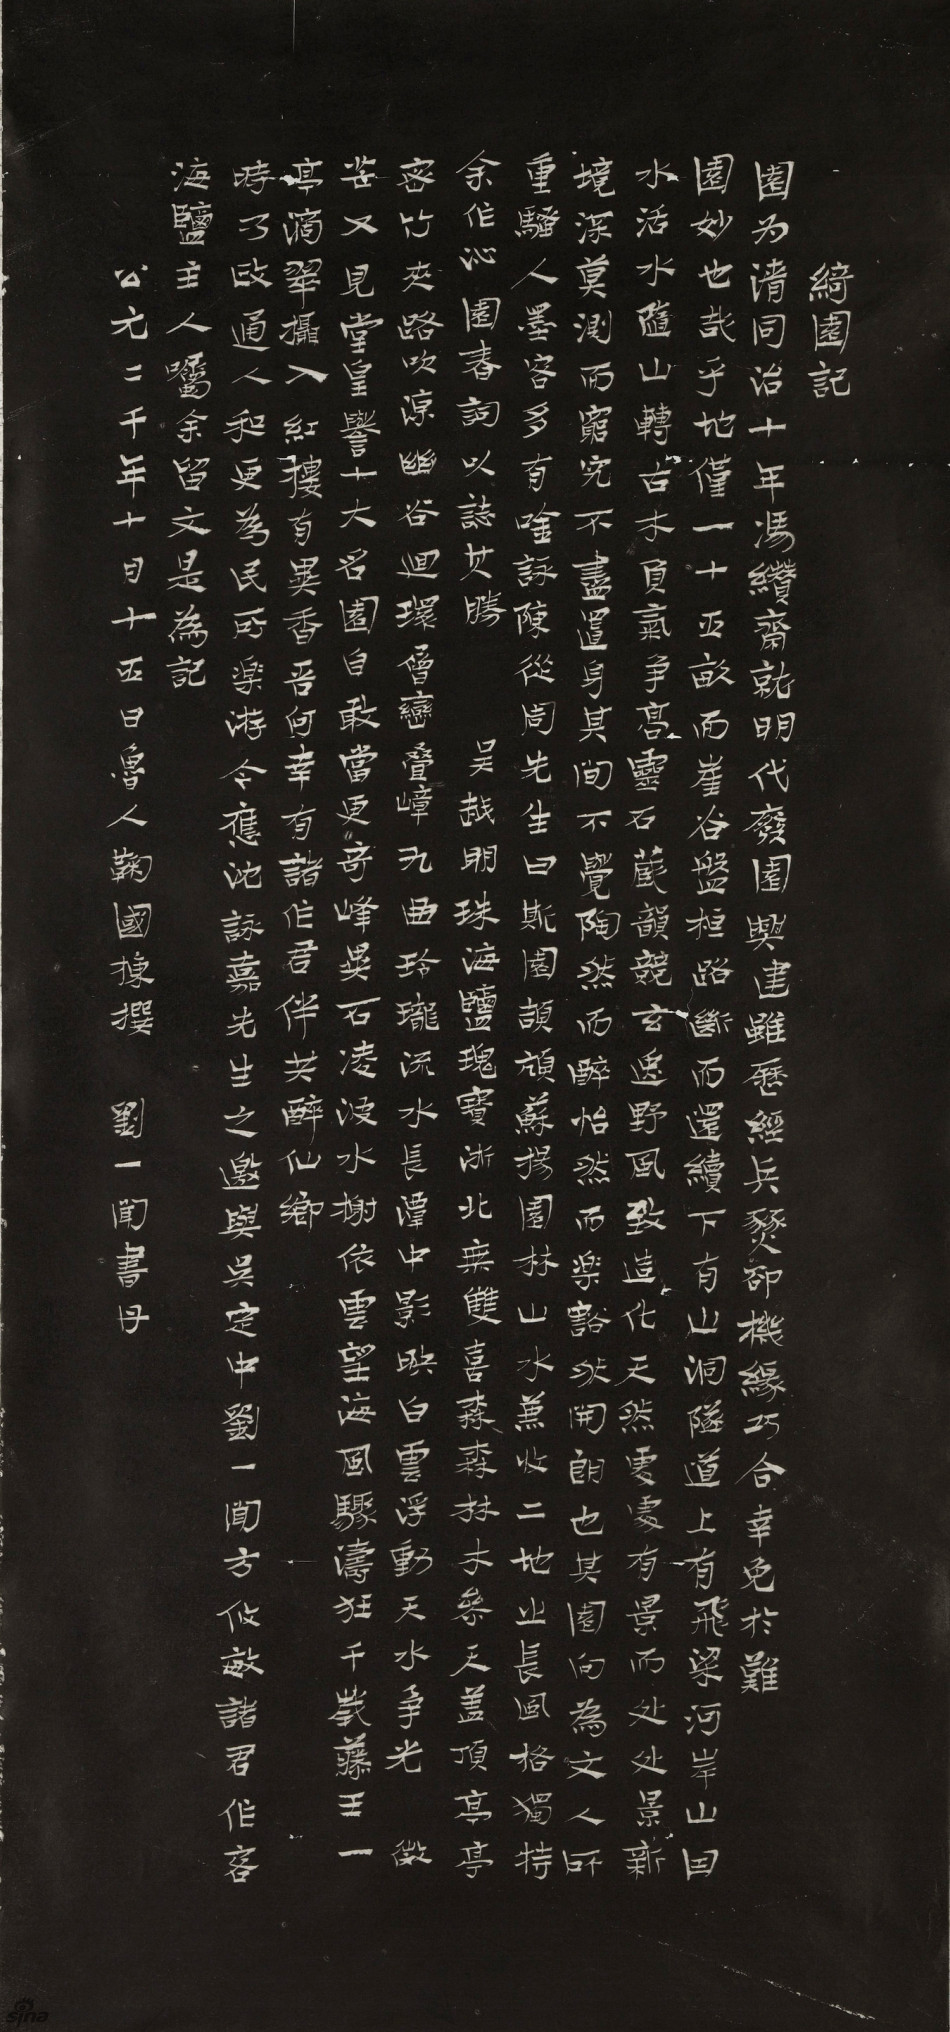 綺園記
園为清同治十年馮纘齋就明代廢園興建雖歷經兵燹卻機緣巧合幸免於難
園妙也哉乎地僅一十五畝而崖谷盤桓路斷而還續下有山洞隧道上有飛梁河岸山因
水活水隨山轉古木負氣争高靈石蔵韻競玄逸野風致造化天然處處有景而处处景新
境深莫測而窮究不盡置身其间不覺陶然而醉怡然而樂豁然開朗也其園向為文人所
重騷人墨客多有唫詠陳從周先生曰斯園頡頏蘇揚園林山水兼收二地之長風格獨特
余作沁園春詞以誌其勝 吴越明珠海鹽瑰寶浙北無雙喜森森林木叅天盖頂亭亭
密竹夾路吹凉幽谷迴環層巒叠嶂九曲玲瓏流水長潭中影映白雲浮動天水争光 微
芒又見堂皇譽十大名園自敢當更奇峰異石凌波水榭依雲望海風驟濤狂千歲藤王一
亭滴翠攝入紅樓有異香吾何幸有諸作君伴共醉仙鄉
時乃政通人和更為民所樂游今應沈詠嘉先生之邀與吳定中劉一聞方攸敏諸君作客
海鹽主人囑余留文是為記
公元二千年十月十五日魯人鞠國棟撰 劉一聞書丹
sina